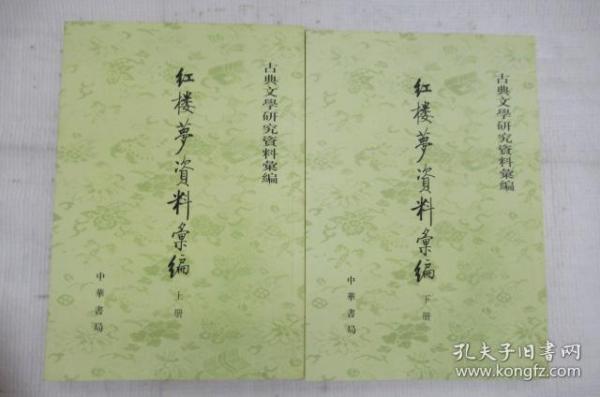 古典文學研究資料彙編
红楼夢資料彙編
上册
中華書局
古典文學研究資料彙編
红楼夢資料彙編
下册
中華書局
孔夫子旧书网
www.kongfz.com